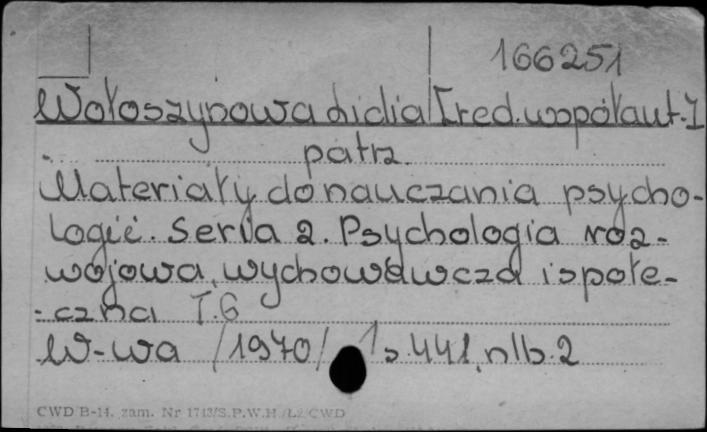 166251
Wołoszynowa Lidia [red. współaut.]
patrz
Materiały do nauczania psycho-
logii. Seria 2. Psychologia roz-
wojowa, wychowawcza i społe-
-czna T.6
W-wa /1970/ s.441, nlb.2
CWD B-14. zam. Nr 1713/S.P.W.H./Lz/CWD